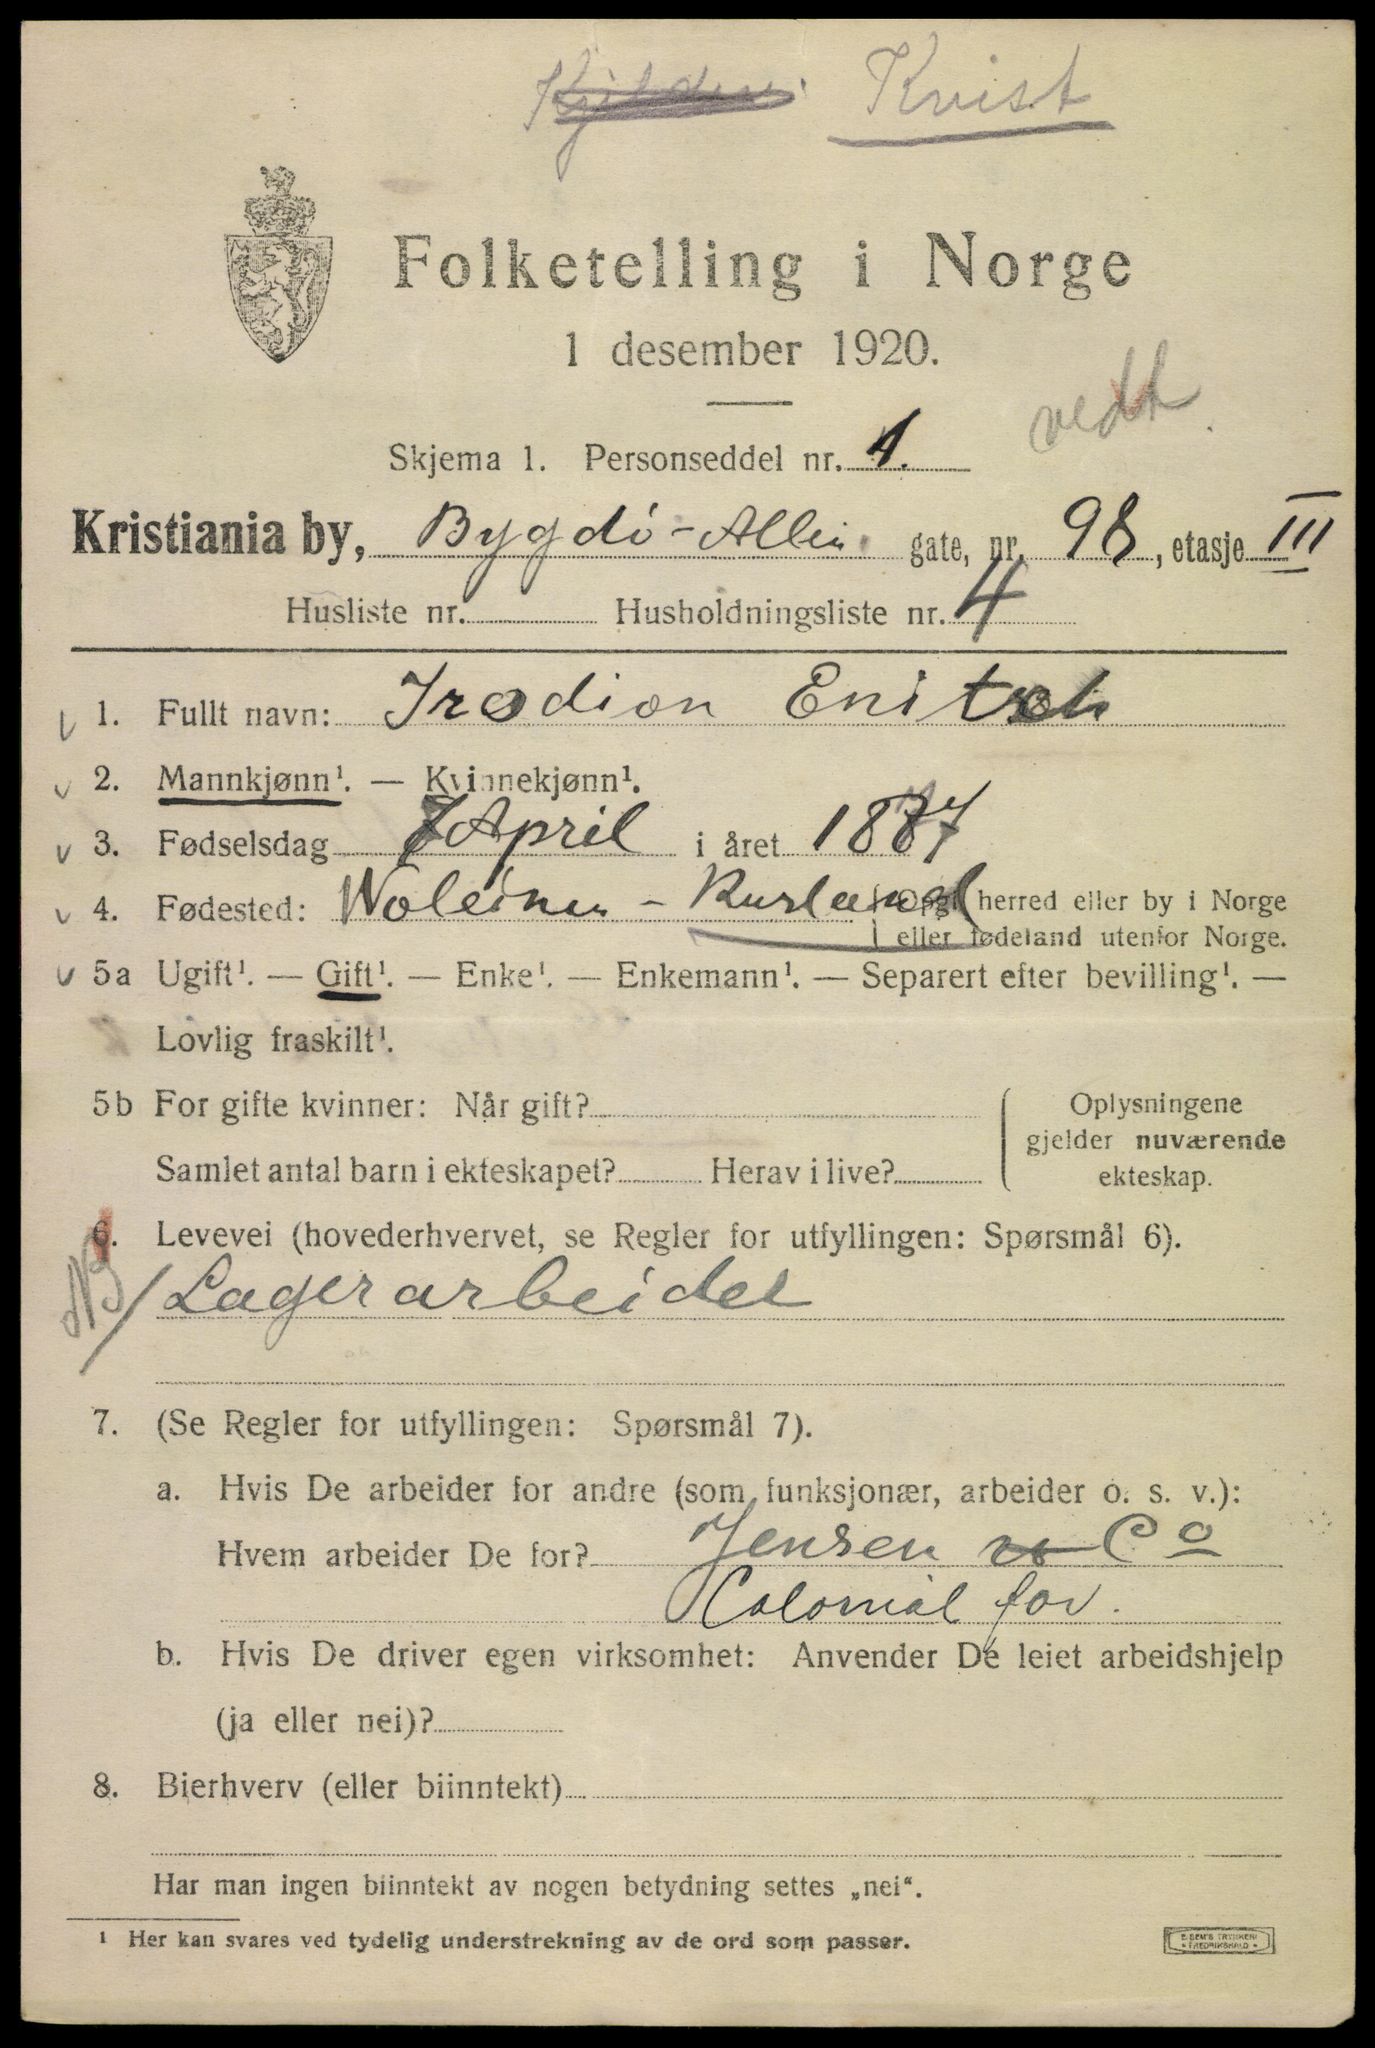 Kvist
Folketelling i Norge
1 desember 1920.
vedt.
Skjema 1. Personseddel nr. 1.
Kristiania by, Bygdö-Alleen gate, nr. 98, etasje III
Husliste nr. Husholdningsliste nr. 4
1. Fullt navn: Irodion Enitsch
2. Mannkjønn¹. — Kvinnekjønn¹.
3. Fødselsdag 7 April i året 1887
4. Fødested: - Kurland (Opgi herred eller by i Norge
eller fødeland utenfor Norge.
5a Ugift¹. — Gift¹. — Enke¹. — Enkemann¹. — Separert efter bevilling¹. —
Lovlig fraskilt¹.
5b For gifte kvinner: Når gift? Oplysningene
gjelder nuværende
Samlet antal barn i ekteskapet? Herav i live? ekteskap.
6. Levevei (hovederhvervet, se Regler for utfyllingen: Spørsmål 6).
Lagerarbeider
7. (Se Regler for utfyllingen: Spørsmål 7).
a. Hvis De arbeider for andre (som funksjonær, arbeider o. s. v.):
Hvem arbeider De for? Jensen & Co
Colonial for.
b. Hvis De driver egen virksomhet: Anvender De leiet arbeidshjelp
(ja eller nei)?
8. Bierhverv (eller biinntekt)
Har man ingen biinntekt av nogen betydning settes „nei“.
¹ Her kan svares ved tydelig understrekning av de ord som passer.
E. SEM'S TRYKKERI
• FREDRIKSHALD •